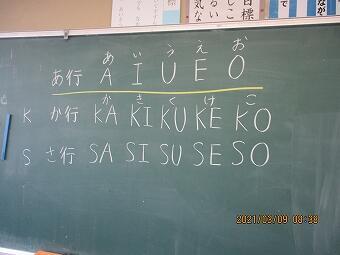 目標
あ い う え お
あ行 A I U E O
か き く け こ
K か行 KA KI KU KE KO
S さ行 SA SI SU SE SO
2021/03/09 08:38